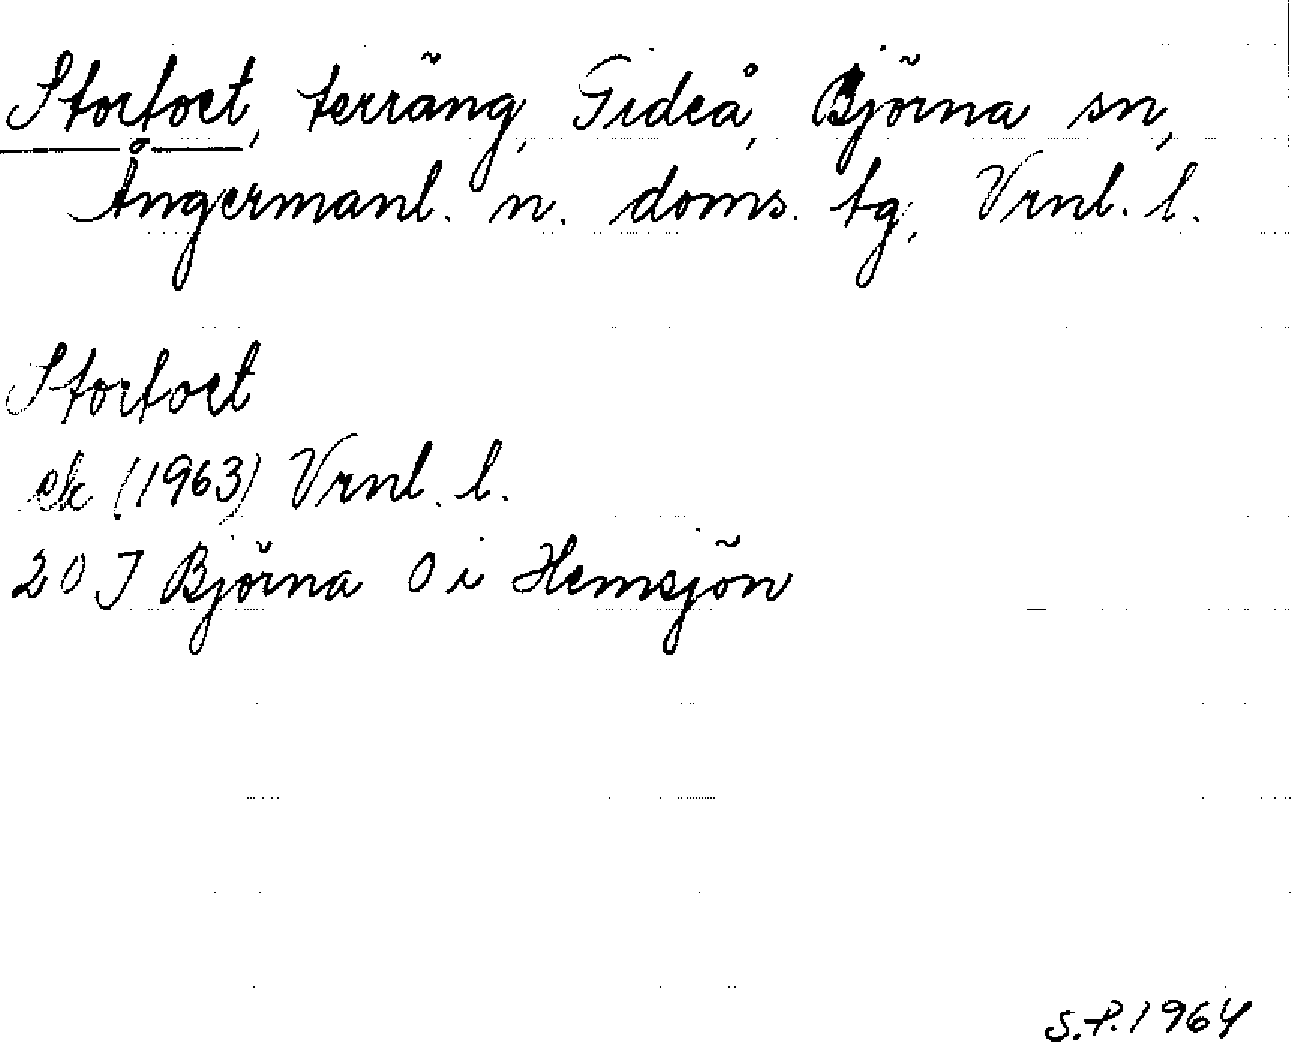 Stortoet, terräng, Gideå, Björna sn,
Ångermanl. n. doms. tg, Vrnl. l.
Stortoet
ek (1963) Vrnl. l.
20 J Björna 0 i Hemsjön
S.P. 1964